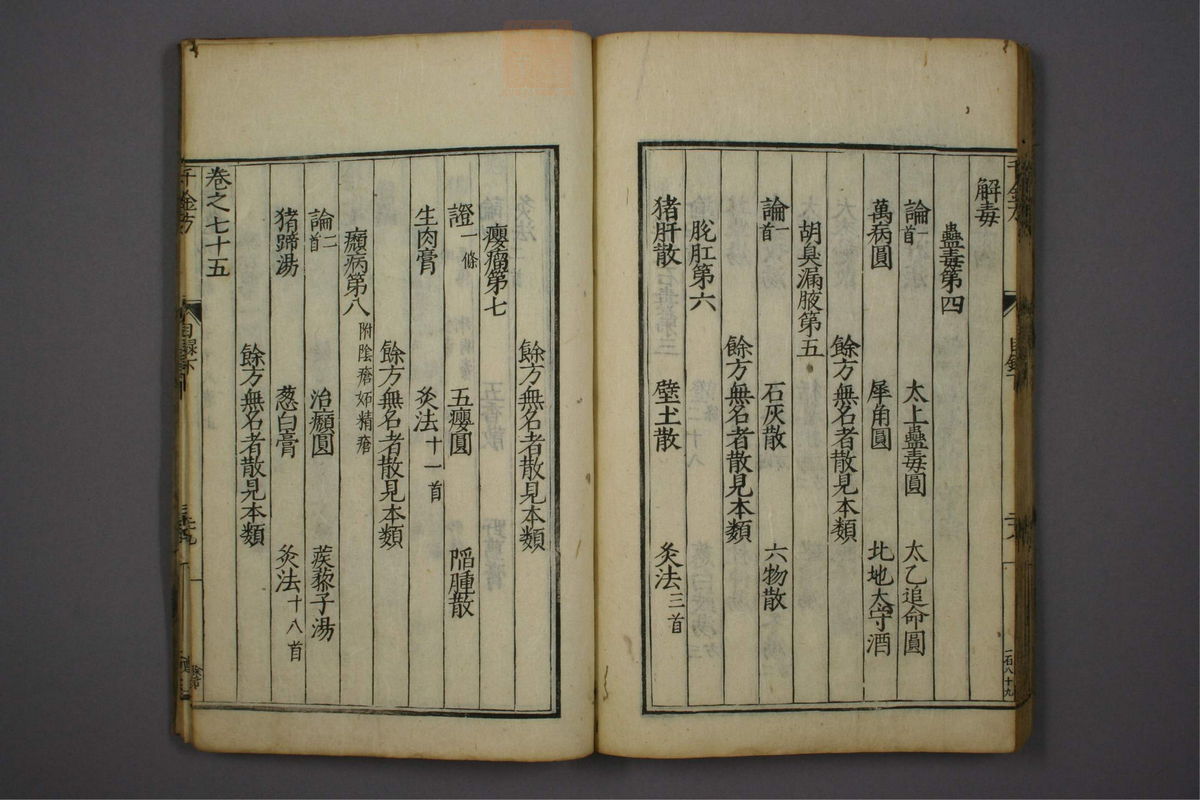 解毒
蠱毒第四
論一首 太上蠱毒圓 太乙追命圓
萬病圓 犀角圓 北地太守酒
餘方無名者散見本類
胡臭漏腋第五
論一首 石灰散 六物散
餘方無名者散見本類
脫肛第六
猪肝散 壁土散 灸法三首
餘方無名者散見本類
癭瘤第七
證一條 五癭圓 陷腫散
生肉膏 灸法十一首
餘方無名者散見本類
㿗病第八附陰瘡妬精瘡
論二首 治㿗圓 蒺藜子湯
猪蹄湯 葱白膏 灸法十八首
餘方無名者散見本類
卷之七十五
千金方